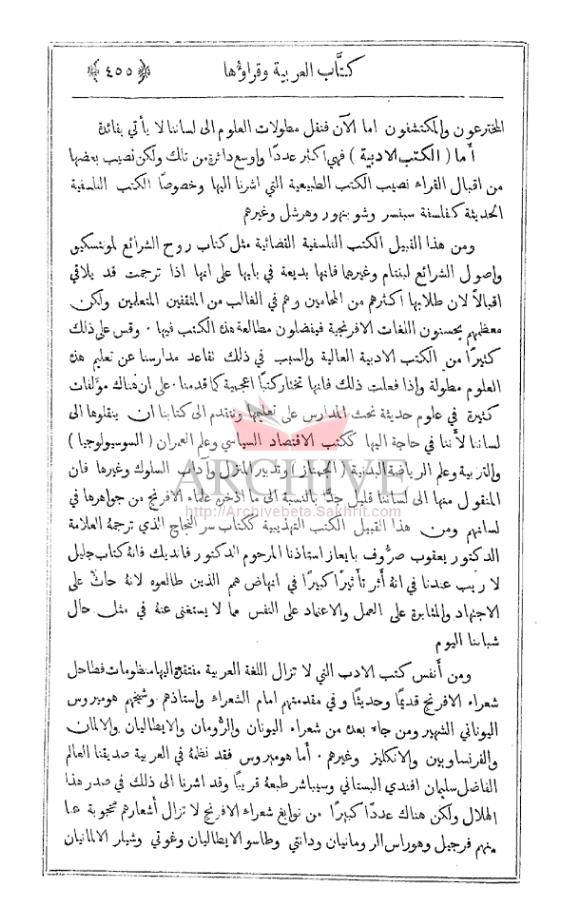 كتَّاب العربية وقراؤها
﴿ ٤٥٥ ﴾
المخترعون والمكتشفون اما الآن فنقل مطولات العلوم الى لساننا لا يأتي بفائدة
أما ( الكتب الادبية ) فهي اكثر عددًا واوسع دائرة من تلك ولكن نصيب بعضها
من اقبال القراء نصيب الكتب الطبيعية التي اشرنا اليها وخصوصًا الكتب الفلسفية
الحديثة كفلسفة سبنسر وشوبنهور وهرشل وغيرهم
ومن هذا القبيل الكتب الفلسفية القضائية مثل كتاب روح الشرائع لمونتسكيو
واصول الشرائع لبنتام وغيرها فانها بديعة في بابها على انها اذا ترجمت قد يلاقي
اقبالاً لان طلابها اكثرهم من المحامين وهم في الغالب من المثقفين المتعلمين ولكن
معظمهم يحسنون اللغات الافرنجية فيفضلون مطالعة هذه الكتب فيها · وقس على ذلك
كثيرًا من الكتب الادبية العالية والسبب في ذلك تقاعد مدارسنا عن تعليم هذه
العلوم مطولة واذا فعلت ذلك فانها تختار كتبًا اعجمية كما قدمنا · على ان هناك مؤلفات
كثيرة في علوم حديثة نحث المدارس على تعليمها ونتقدم الى كتابنا ان ينقلوها الى
لساننا لأننا في حاجة اليها ككتب الاقتصاد السياسي وعلم العمران ( السوسيولوجيا )
والتربية وعلم الرياضة البدنية ( الجمناز ) وتدبير المنزل وآداب السلوك وغيرها فان
ARCHIVE
المنقول منها الى لساننا قليل جدًّا بالنسبة الى ما ادخره علماء الافرنج من جواهرها في
http://Archivebeta.Sakhrit.com
لسانهم ومن هذا القبيل الكتب التهذيبية ككتاب سر النجاح الذي ترجمهُ العلامة
الدكتور يعقوب صرُّوف بايعاز استاذنا المرحوم الدكتور فانديك فانهُ كتاب جليل
لا ريب عندنا في انهُ أثر تأثيرًا كبيرًا في انهاض همم الذين طالعوه لانهُ حاثٌ على
الاجتهاد والمثابرة على العمل والاعتماد على النفس مما لا يستغنى عنهُ في مثل حال
شباننا اليوم
ومن أنفس كتب الادب التي لا تزال اللغة العربية مفتقرة اليها منظومات فطاحل
شعراء الافرنج قديمًا وحديثًا وفي مقدمتهم امام الشعراء واستاذهم وشيخهم هوميروس
اليوناني الشهير ومن جاء بعده من شعراء اليونان والرُّومان والايطاليان والالمان
والفرنساويين والانكليز وغيرهم · أما هوميروس فقد نظمهُ في العربية صديقنا العالم
الفاضل سليمان افندي البستاني وسيباشر طبعهُ قريبًا وقد اشرنا الى ذلك في صدر هذا
الهلال ولكن هناك عددًا كبيرًا من نوابغ شعراء الافرنج لا تزال أشعارهم محجوبة عنا
منهم فرجيل وهوراس الرومانيان ودانتي وطاسو الايطاليان وغوتي وشيلر الالمانيان